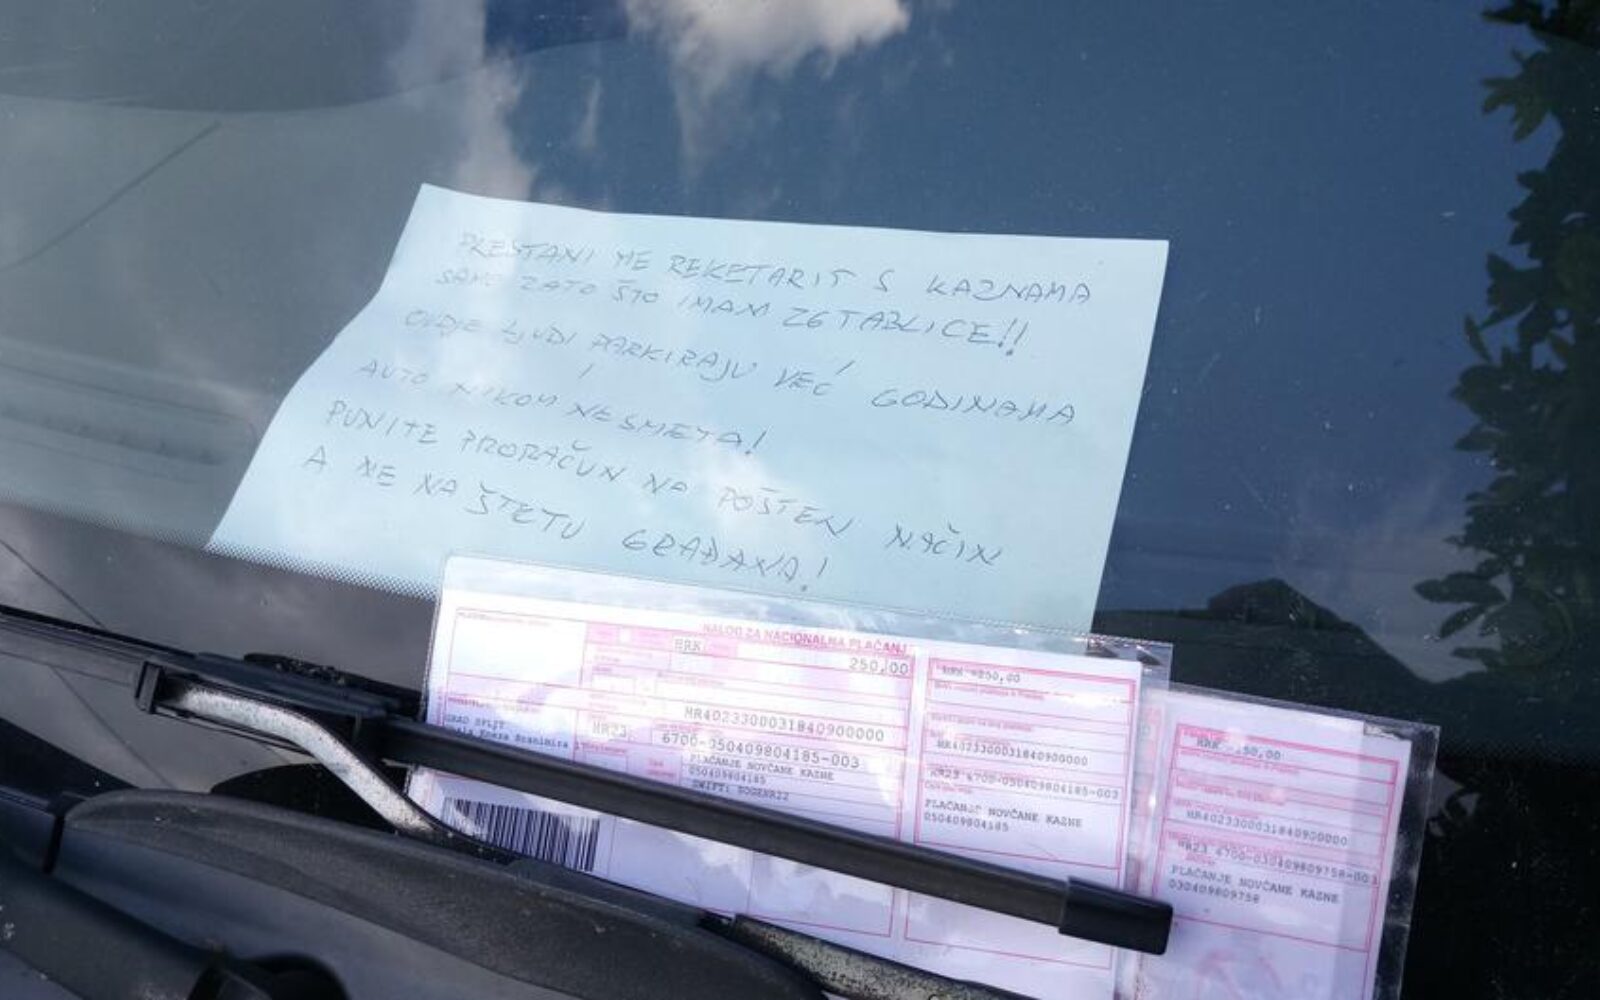 PRESTANI ME REKETARIT S KAZNAMA
SAMO ZATO ŠTO IMAM ZG TABLICE!!
OVDJE LJUDI PARKIRAJU VEĆ GODINAMA
AUTO NIKOM NE SMETA!
PUNITE PRORAČUN NA POŠTEN NAČIN
A NE NA ŠTETU GRAĐANA!
NALOG ZA NACIONALNA PLAĆANJ
HRK
250,00
GRAD SPLIT
Kneza Branimira
HR4023300031840900000
HR23
6700-050409804185-003
PLAĆANJE NOVČANE KAZNE
050409804185
SWIFT: SOGEHR22
HRK *250,00
HR4023300031840900000
HR23 6700-050409804185-003
PLAĆANJE NOVČANE KAZNE
050409804185
HRK
50,00
HR4023300031840900000
HR23 6700-030409809758-003
PLAĆANJE NOVČANE KAZNE
030409809758